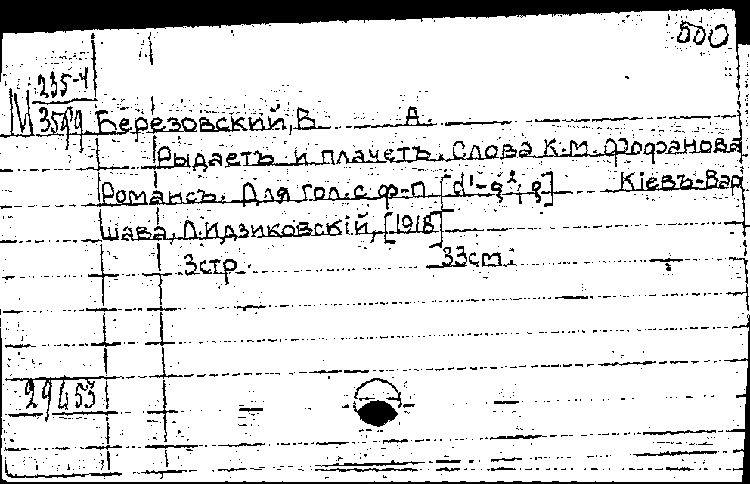 500
М 235-4
3599
Березовский, В А.
Рыдаетъ и плачетъ. Слова К.М. Фофанова
Романсъ. Для гол. с ф-п [d'-g², g] Кіевъ-Вар
шава, Л. Идзиковскій, [1918]
3стр. 33см.
29453